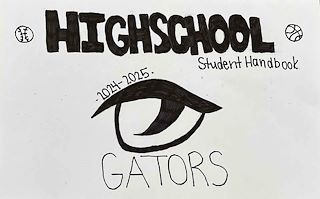 HIGHSCHOOL
Student Handbook
-2024-2025-
GATORS